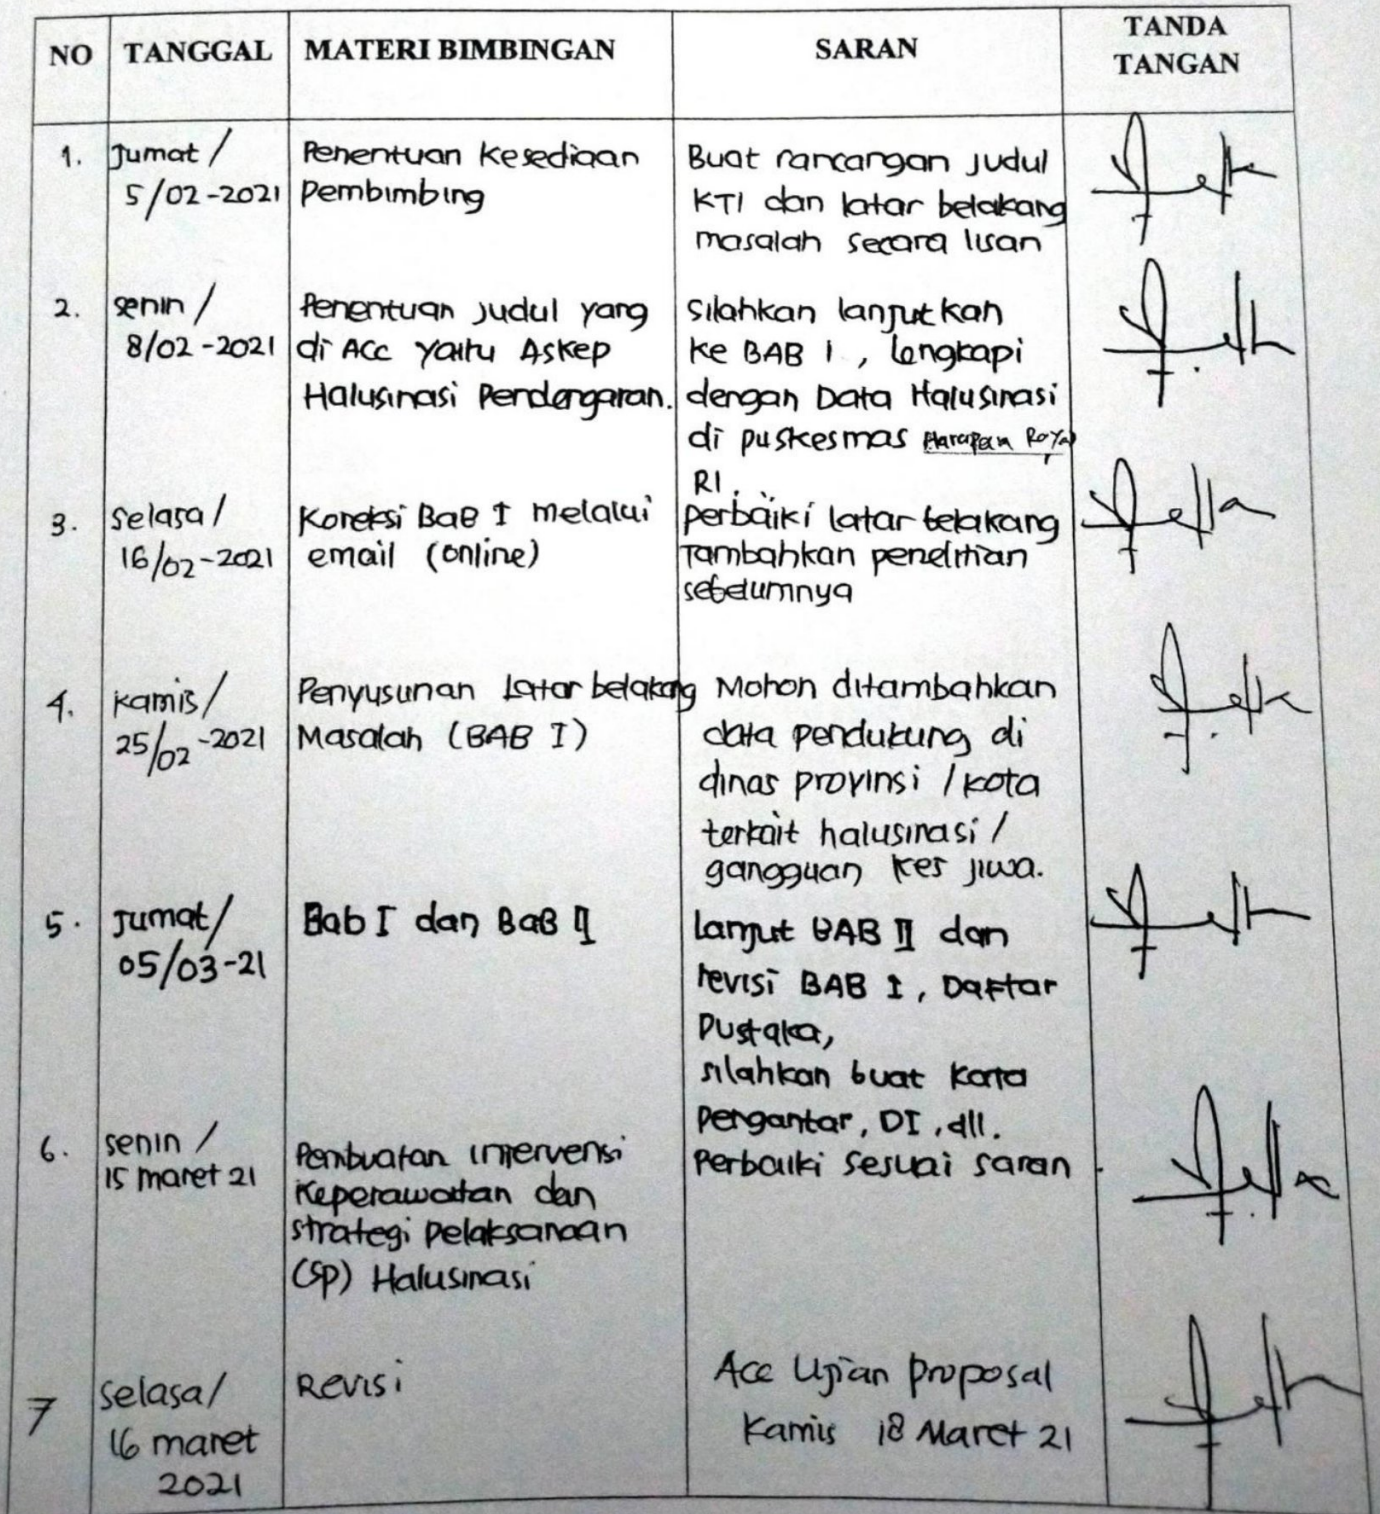 NO TANGGAL MATERI BIMBINGAN SARAN TANDA TANGAN
1. Jumat /
5/02-2021
Penentuan Kesediaan
Pembimbing
Buat rancangan judul
KTI dan latar belakang
masalah secara lisan
2. senin /
8/02-2021
Penentuan judul yang
di Acc yaitu Askep
Halusinasi Pendengaran.
silahkan lanjutkan
ke BAB I, lengkapi
dengan Data Halusinasi
di puskesmas Harapan Raya
RI.
3. Selasa /
16/02-2021
Koreksi BaB I melalui
email (online)
perbaiki latar belakang
Tambahkan penelitian
sebelumnya
4. kamis /
25/02-2021
Penyusunan Latar belakang
Masalah (BAB I)
Mohon ditambahkan
data pendukung di
dinas provinsi / kota
terkait halusinasi /
gangguan kes jiwa.
5. Jumat /
05/03-21
Bab I dan BaB II
lanjut BAB II dan
revisi BAB I, Daftar
Pustaka,
silahkan buat kata
Pengantar, DI, dll.
6. senin /
15 maret 21
Pembuatan intervensi
Keperawatan dan
strategi pelaksanaan
(SP) Halusinasi
Perbaiki sesuai saran
7 selasa /
16 maret
2021
Revisi
Acc Ujian proposal
Kamis 18 Maret 21